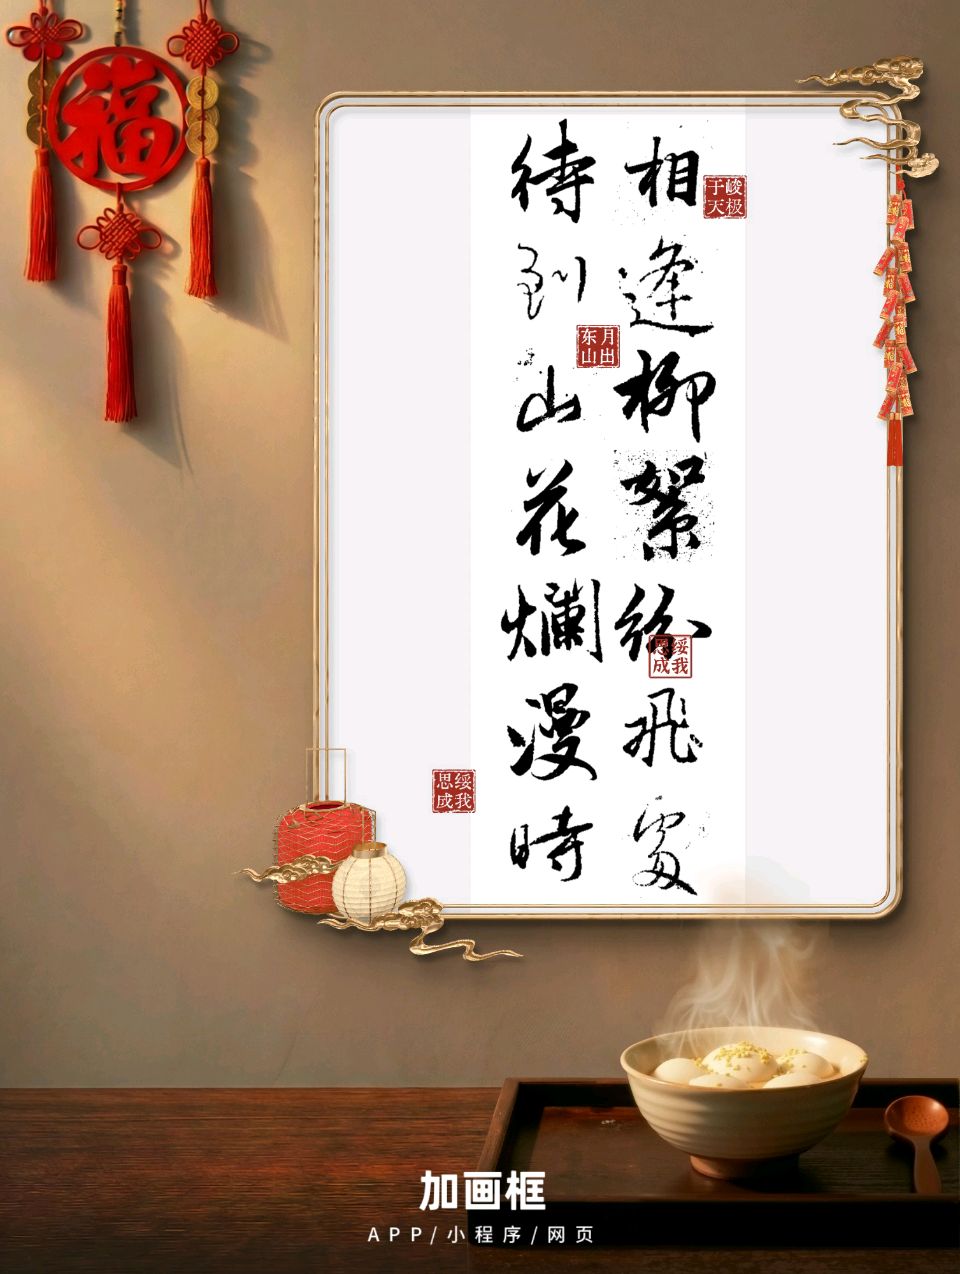 福
相逢柳絮紛飛處
待到山花爛漫時
峻极于天
月出东山
绥我思成
绥我思成
加画框
APP/小程序/网页